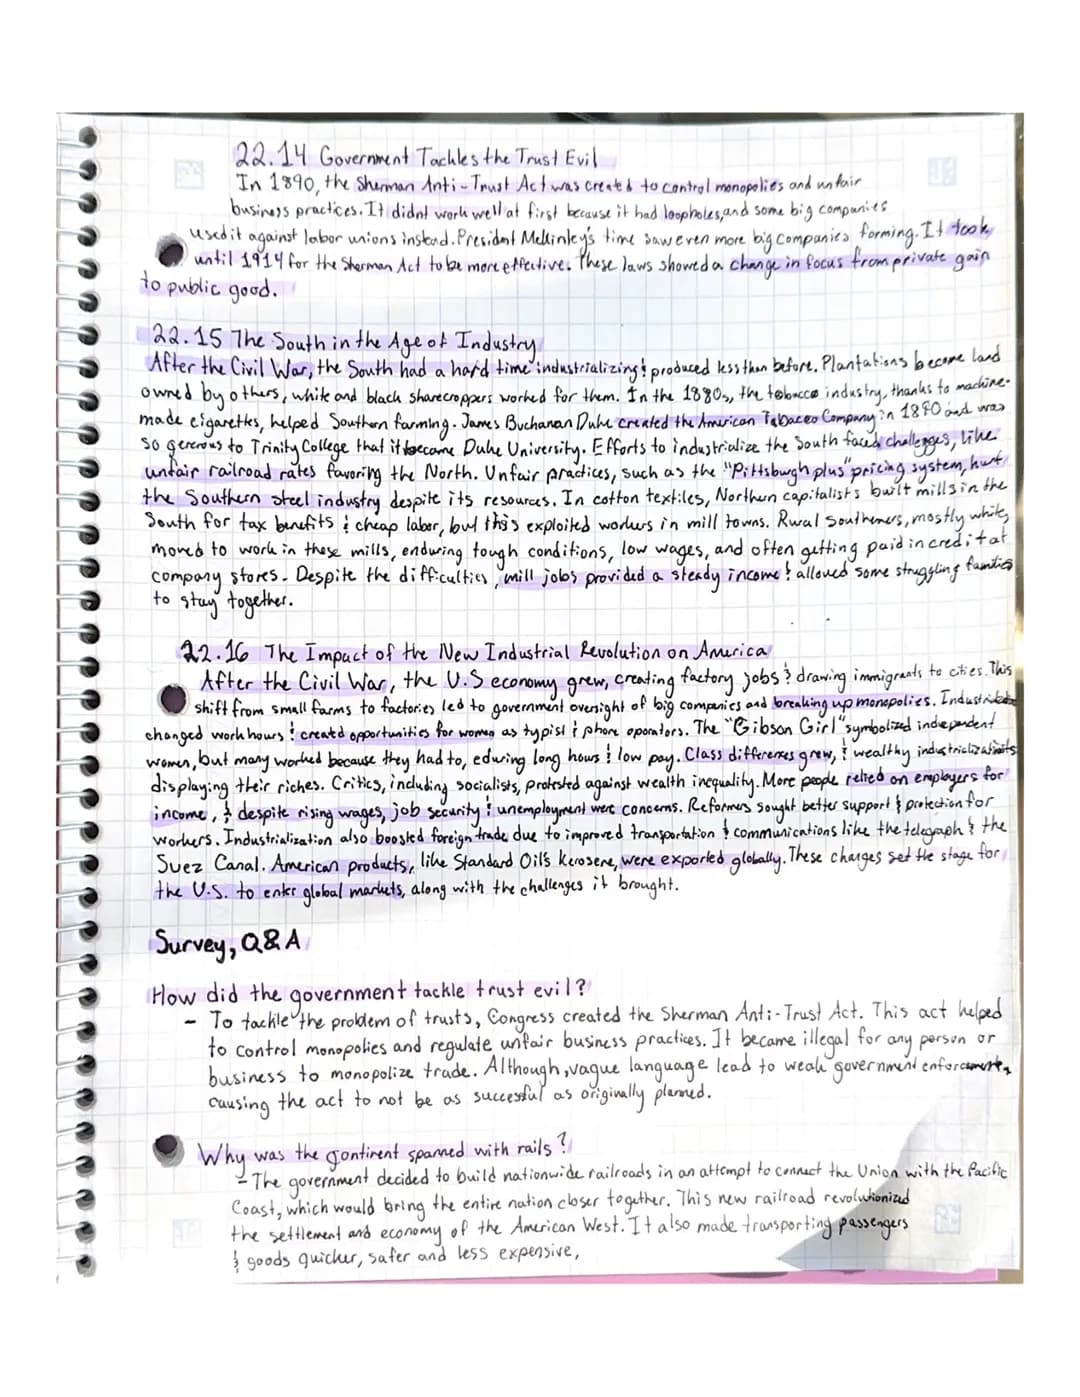 22.14 Government Tackles the Trust Evil
In 1890, the Sherman Anti-Trust Act was created to control monopolies and unfair
business practices. It didnt work well at first because it had loopholes, and some big companies
used it against labor unions instead. President McKinley's time saw even more big companies forming. It took
until 1914 for the Sherman Act to be more effective. These laws showed a change in focus from private gain
to public good.
22.15 The South in the Age of Industry
After the Civil War, the South had a hard time industrializing & produced less than before. Plantations became land
owned by others, white and black sharecroppers worked for them. In the 1880s, the tobacco industry, thanks to machine-
made cigarettes, helped Southern farming. James Buchanan Duke created the American Tobacco Company in 1890 and was
so generous to Trinity College that it became Duke University. Efforts to industrialize the South faced challegges, like
unfair railroad rates favoring the North. Unfair practices, such as the "Pittsburgh plus" pricing system, hurt
the Southern steel industry despite its resources. In cotton textiles, Northern capitalists built mills in the
South for tax benefits & cheap labor, but this exploited workers in mill towns. Rural Southerners, mostly white,
moved to work in these mills, enduring tough conditions, low wages, and often getting paid in credit at
company stores. Despite the difficulties, mill jobs provided a steady income & allowed some struggling families
to stay together.
22.16 The Impact of the New Industrial Revolution on America
After the Civil War, the U.S economy grew, creating factory jobs & drawing immigrants to cities. This
shift from small farms to factories led to government oversight of big companies and breaking up monopolies.
changed work hours & created opportunities for women as typist & phone operators. The "Gibson Girl" symbolized independent
women, but many worked because they had to, eduring long hours & low pay. Class differences grew, & wealthy
displaying their riches. Critics, including socialists, protested against wealth inequality. More people relied on employers for
income, & despite rising wages, job security & unemployment were concerns. Reformers sought better support & protection for
workers. Industrialization also boosted foreign trade due to improved transportation & communications like the telegraph & the
Suez Canal. American products, like Standard Oil's kerosene, were exported globally. These changes set the stage for
the U.S. to enter global markets, along with the challenges it brought.
Survey, Q&A
How did the government tackle trust evil?
- To tackle the problem of trusts, Congress created the Sherman Anti-Trust Act. This act helped
to control monopolies and regulate unfair business practices. It became illegal for any person or
business to monopolize trade. Although, vague language lead to weak government enforcement,
causing the act to not be as successful as originally planned.
Why was the continent spanned with rails?
- The government decided to build nationwide railroads in an attempt to connect the Union with the Pacific
Coast, which would bring the entire nation closer together. This new railroad revolutionized
the settlement and economy of the American West. It also made transporting passengers
& goods quicker, safer and less expensive,